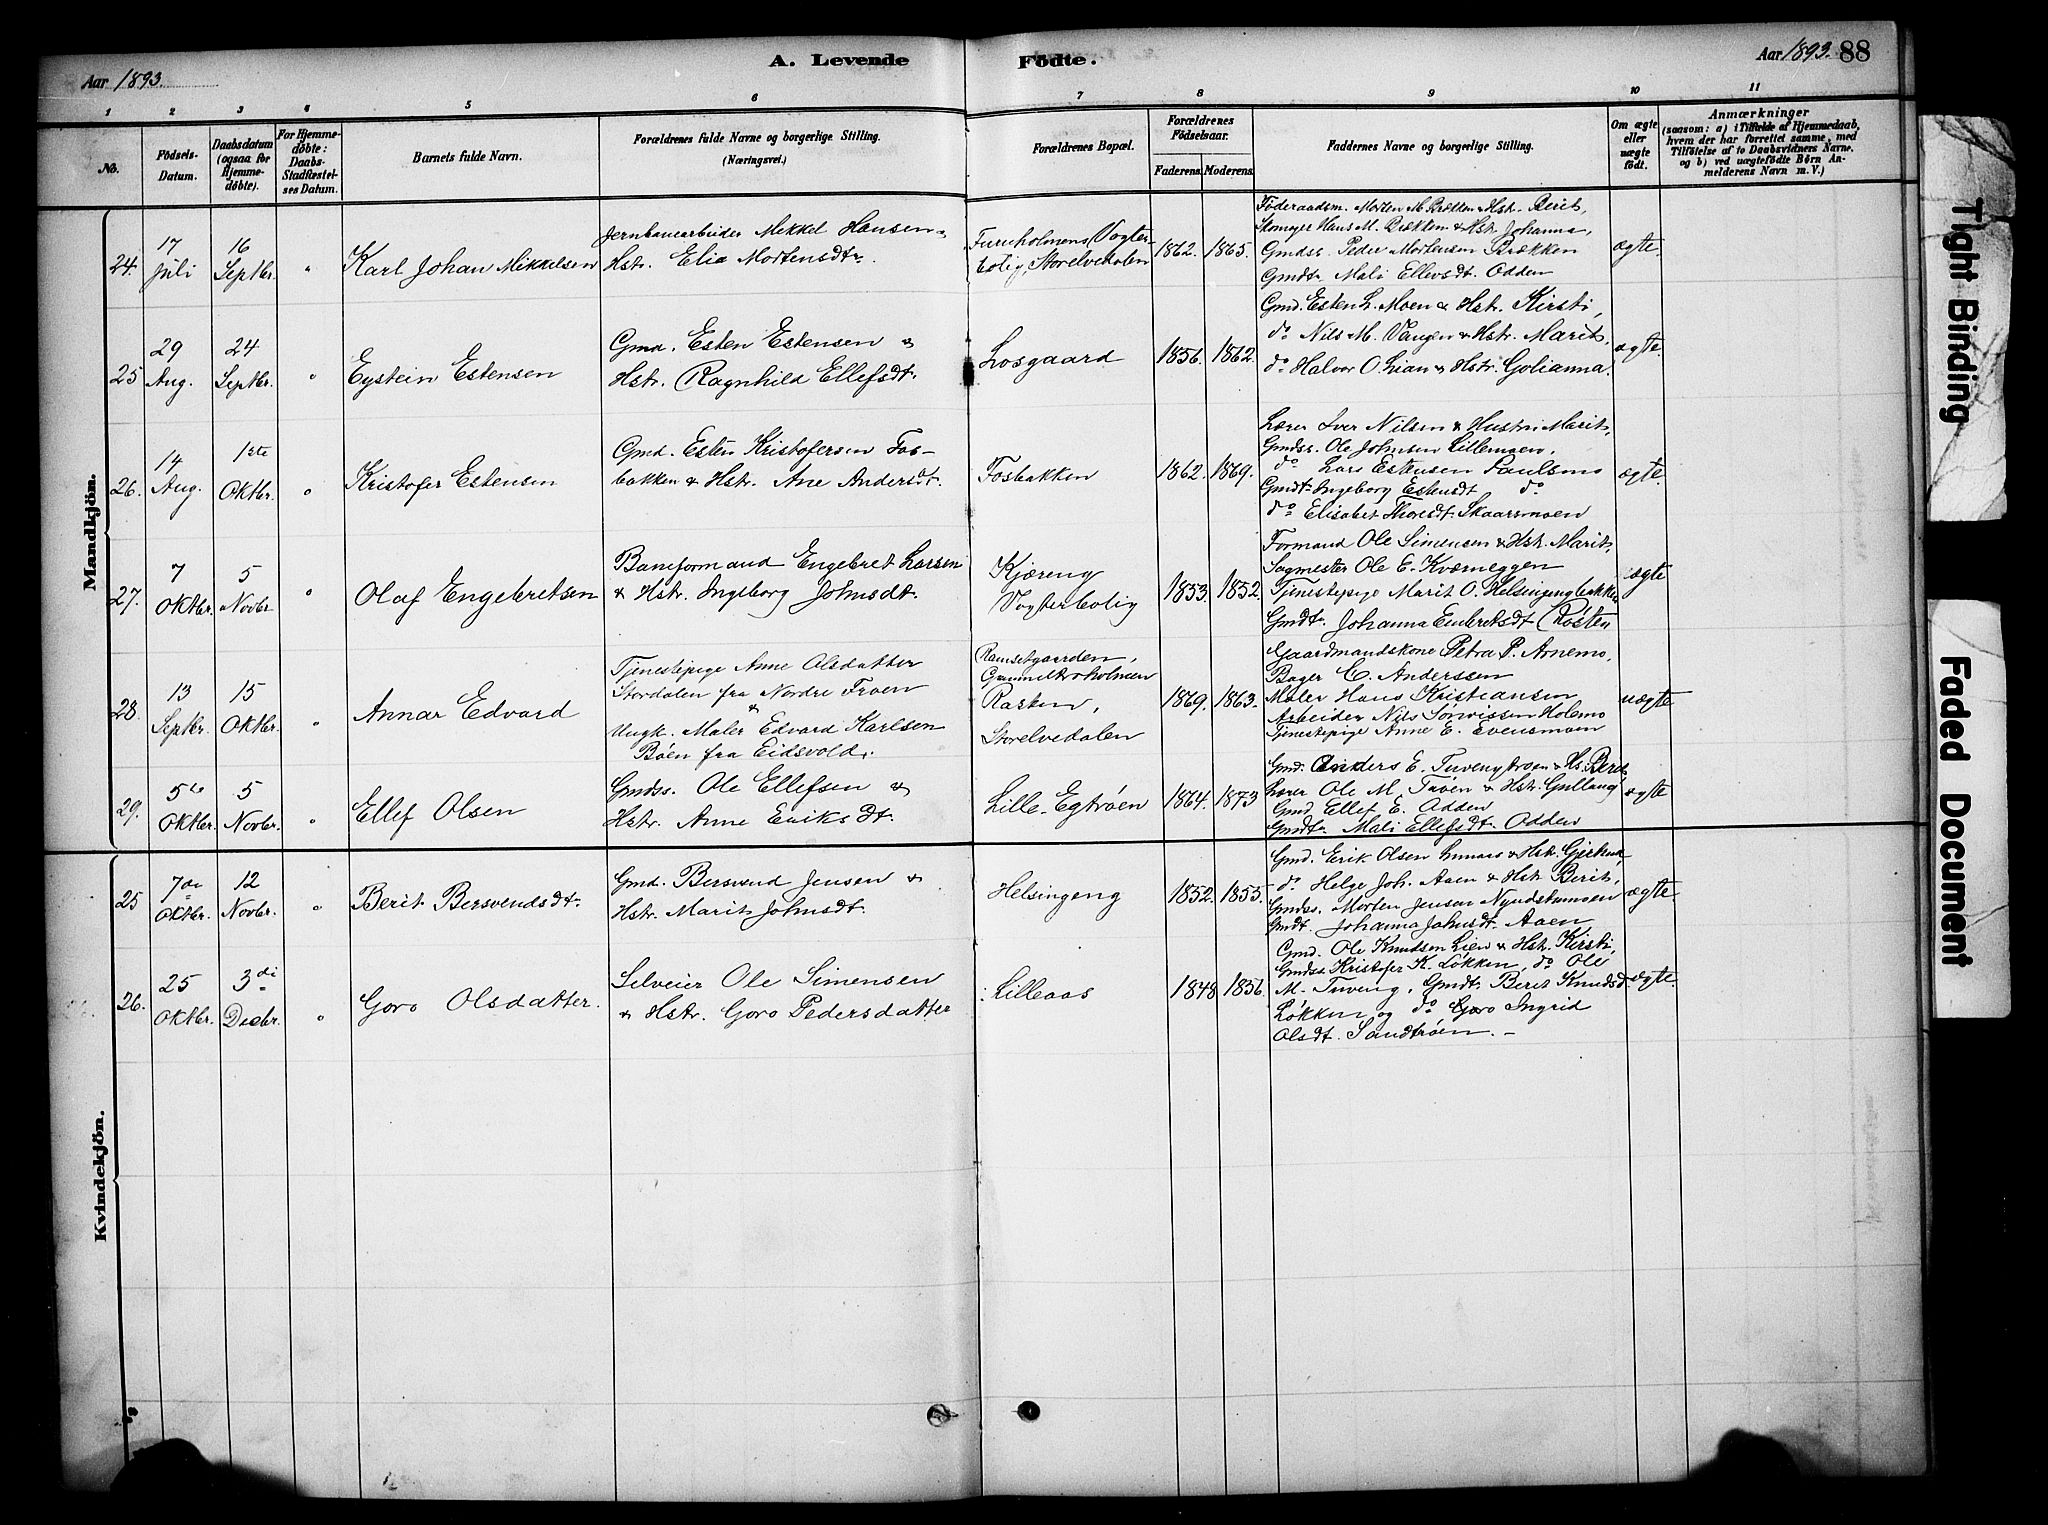 Aar 1893.
A. Levende Födte.
Aar 1893. 88
1 2 3 4 5 6 7 8 9 10 11
No.
Födsels-Datum.
Daabsdatum (ogsaa for Hjemme-döbte).
For Hjemme-döbte: Daabs-Stadfæstel-ses Datum.
Barnets fulde Navn.
Forældrenes fulde Navne og borgerlige Stilling.
(Næringsvei.)
Forældrenes Bopæl.
Forældrenes Födselsaar.
Faderens. Moderens.
Faddernes Navne og borgerlige Stilling.
Om ægte eller uægte födt.
Anmærkninger
(saasom: a) i Tilfælde af Hjemmedaab,
hvem der har forrettet samme, med
Tilföielse af to Daabsvidners Navne,
og b) ved uægtefödte Börn An-
melderens Navn m. V.)
Mandkjön.
24. 17 Juli 16 Septbr. " Karl Johan Mikkelsen
Jernbanearbeider Mikkel Hansen &
Hstr. Elia Mortensdtr.
Furuholmens Vogter-
bolig, Storelvedalen
1862. 1865.
Föderaadsm. Morten M. Brækken & Hstr. Berit,
Skomager Hans M. Brækken & Hstr. Johanna,
Gmdss. Peder Mortensen Brækken
Gmdtr. Mali Ellevsdt. Odden
ægte.
25 29 Aug. 24 Septbr. " Eystein Estensen
Gmd. Esten Estensen &
Hstr. Ragnhild Ellefsdt.
Losgaard
1856. 1862.
Gmd. Esten L. Moen & Hstr. Kirsti,
do Nils M. Vangen & Hstr. Marit,
do Halvor O. Lian & Hstr. Golianna.
ægte.
26. 14 Aug. 1ste Oktbr. " Kristofer Estensen
Gmd. Esten Kristofersen Fos-
bakken & Hstr. Ane Andersdt.
Fosbakken
1862. 1869.
Lærer Iver Nilsen & Hustru Marit,
Gmdss. Ole Johnsen Lillemoen,
do Lars Estensen Paulsmo
Gmdt. Ingeborg Estensdt do
do Elisabet Thoresdt. Skaarsmoen
ægte.
27. 7 Oktbr. 5 Novbr " Olaf Engebretsen
Baneformand Engebret Larsen
& Hstr. Ingeborg Johnsdt.
Kjæreng
Vogterbolig
1853. 1852.
Formand Ole Simensen & Hstr. Marit,
Sagmester Ole E. Kværneggen
Tjenestepige Marit O. Helsingengbakken
Gmdt. Johanna Embretsdt Røsten
ægte
28. 13 Septbr. 15 Oktbr. " Annar Edvard
Tjenestepige Anne Olsdatter
Stordalen fra Nordre Froen
&
Ungk. Maler Edvard Karlsen
Böen fra Eidsvold.
Ramsetgaarden,
Rasken,
Storelvedalen
1869. 1863.
Gaardmandskone Petra P. Arnemo,
Bager C. Anderssen
Maler Hans Kristiansen
Arbeider Nils Holemo
Tjenestepige Anne E. Evensmoen
uægte
29. 5te Oktbr. 5 Novbr. " Ellef Olsen
Gmdss. Ole Ellefsen &
Hstr. Anne Eriksdt.
Lille-Egtrøen
1864. 1873
Gmd. Anders E. & Hs. Berit
Lærer Ole M. Tuven & Hstr. Gullaug
Gmd Ellef E. Odden
Gmdtr. Mali Ellefsdt. Odden
ægte
Kvindekjön.
25 7de Oktbr. 12 Novbr. " Berit Bersvendsdt.
Gmd. Bersvend Jensen &
Hstr. Marit Johnsdt.
Helsingeng
1852. 1855.
Gmd. Erik Olsen & Hstr. Gjertrud
do Helge Joh. Aaen & Hstr Berit,
Gmdss. Morten Jensen Nyndstumoen
Gmdt. Johanna Johnsdt. Aaen
ægte.
26. 25 Oktbr. 3di Decbr. " Goro Olsdatter.
Selveier Ole Simensen
& Hstr. Goro Pedersdatter
Lilleaas
1848 1856.
Gmd. Ole Knudsen Lien & Hstr. Kirsti,
Gmdss. Kristofer K. Løkken, do Ole
M. Tuveng, Gmdt. Berit Knudsdt
Løkken og do Goro Ingrid
Olsdt. Sandtrøen. –
ægte.
Tight Binding
Faded Document